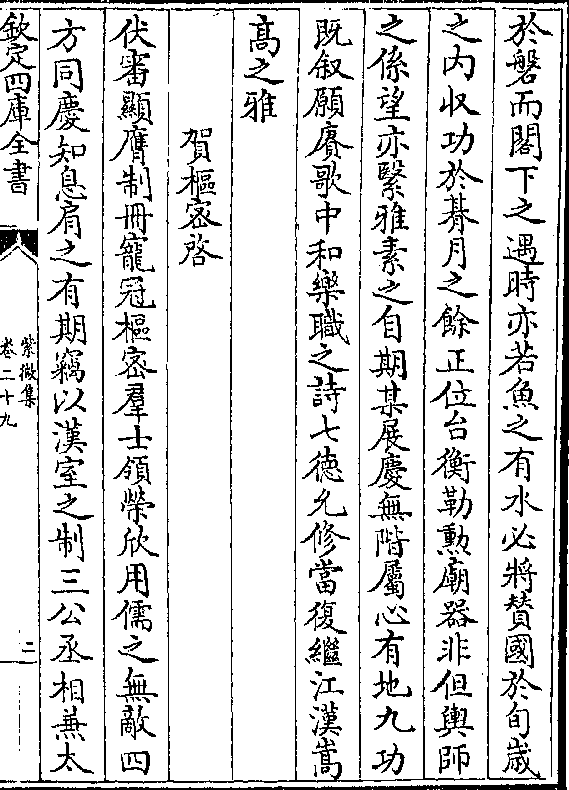 於磐而閣下之遇時亦若魚之有水必將賛國於旬歳
之内収功於朞月之餘正位台衡勒勲廟器非但輿師
之係望亦繄雅素之自期某展慶無階屬心有地九功
既叙願賡歌中和樂職之詩七德允修當復繼江漢嵩
髙之雅
賀樞密啓
伏審顯膺制冊寵冠樞密羣士領榮欣用儒之無敵四
方同慶知息肩之有期竊以漢室之制三公丞相兼太
欽定四庫全書
紫微集
卷二十九
二